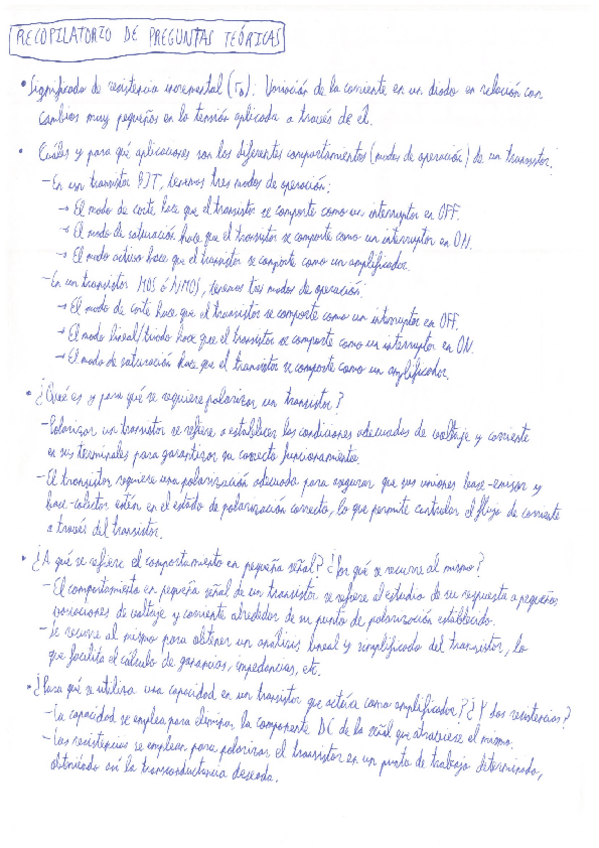 RECOPILATORIO DE PREGUNTAS TEÓRICAS
• Significado de resistencia incremental (r₀): Variación de la corriente en un diodo en relación con
cambios muy pequeños en la tensión aplicada a través de él.
• Cuáles y para qué aplicaciones son los diferentes comportamientos (modos de operación) de un transistor.
- En un transistor BJT, tenemos tres modos de operación:
→ El modo de corte hace que el transistor se comporte como un interruptor en OFF.
→ El modo de saturación hace que el transistor se comporte como un interruptor en ON.
→ El modo activo hace que el transistor se comporte como un amplificador.
- En un transistor MOS ó NMOS, tenemos tres modos de operación:
→ El modo de corte hace que el transistor se comporte como un interruptor en OFF.
→ El modo lineal/triodo hace que el transistor se comporte como un interruptor en ON.
→ El modo de saturación hace que el transistor se comporte como un amplificador.
• ¿Qué es y para qué se requiere polarizar un transistor?
- Polarizar un transistor se refiere a establecer las condiciones adecuadas de voltaje y corriente
en sus terminales para garantizar su correcto funcionamiento.
- El transistor requiere una polarización adecuada para asegurar que sus uniones base-emisor y
base-colector estén en el estado de polarización correcto, lo que permite controlar el flujo de corriente
a través del transistor.
• ¿A qué se refiere el comportamiento en pequeña señal? ¿Por qué se recurre al mismo?
- El comportamiento en pequeña señal de un transistor se refiere al estudio de su respuesta a pequeñas
variaciones de voltaje y corriente alrededor de su punto de polarización establecido.
- Se recurre al mismo para obtener un análisis lineal y simplificado del transistor, lo
que facilita el cálculo de ganancias, impedancias, etc.
• ¿Para qué se utiliza una capacidad en un transistor que actúa como amplificador? ¿Y dos resistencias?
- La capacidad se emplea para eliminar la componente DC de la señal que atraviese el mismo.
- Las resistencias se emplean para polarizar el transistor en un punto de trabajo determinado,
obteniendo así la transconductancia deseada.